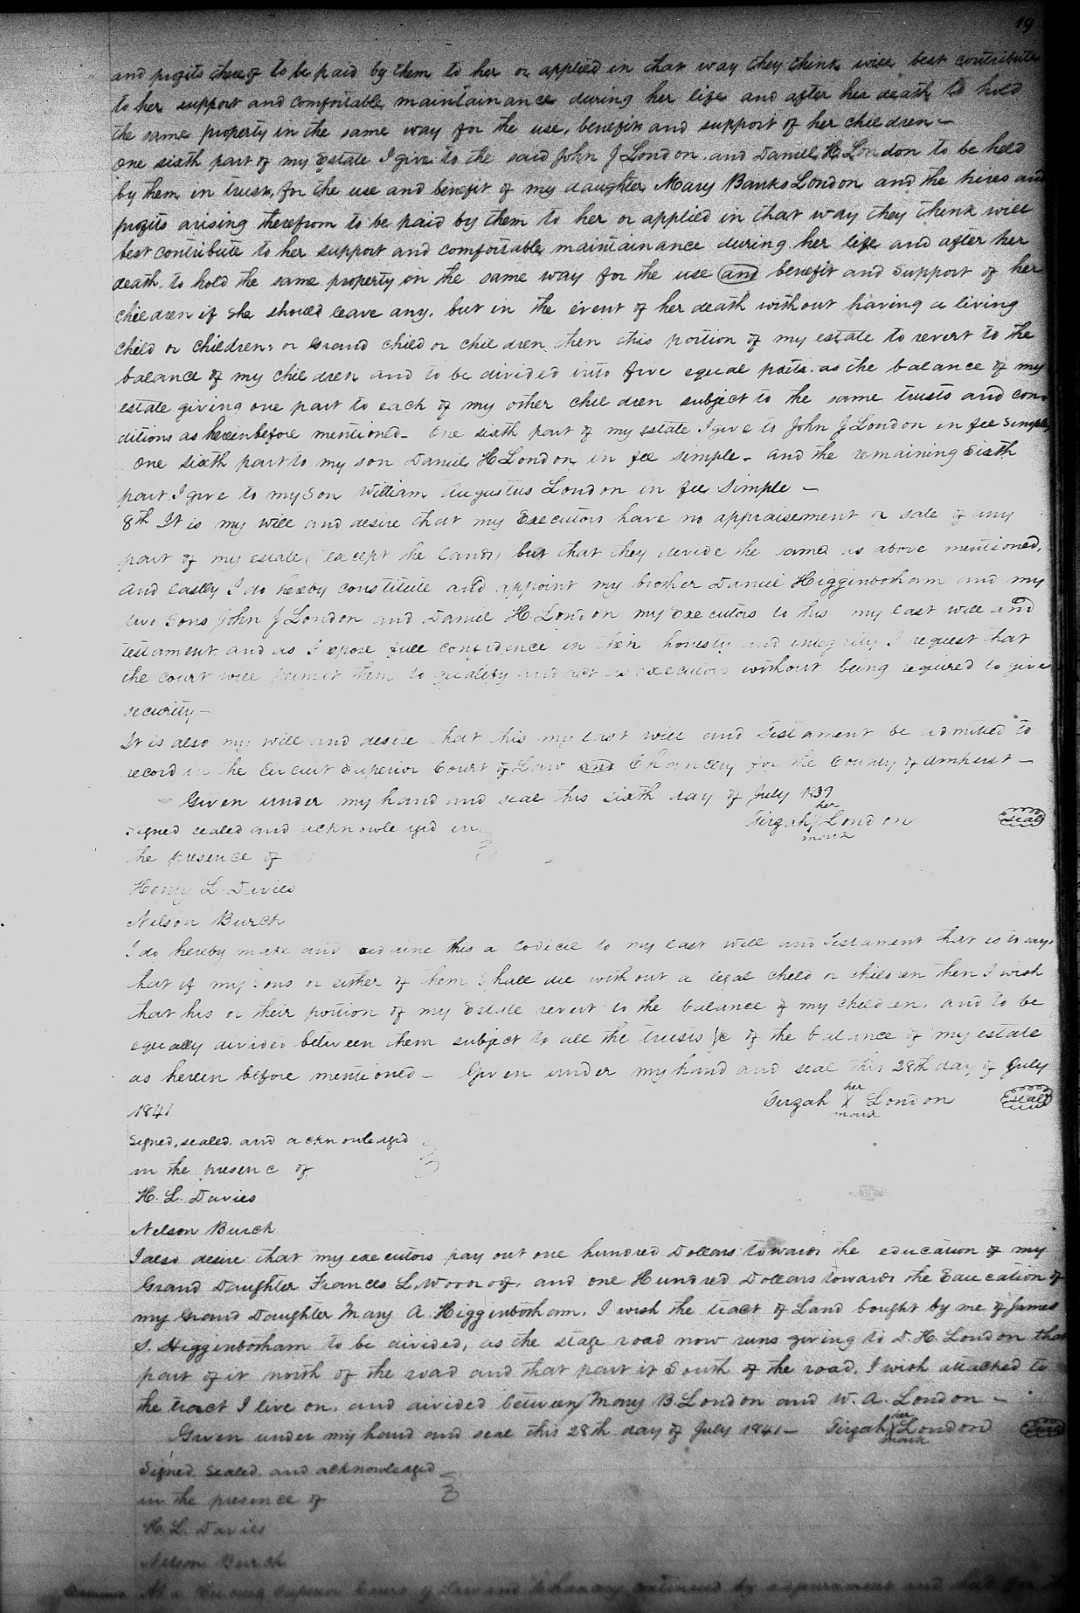 19
and profits thereof to be paid by them to her or applied in that way they think will best contribute
to her support and comfortable maintainance during her life and after her death to hold
the same property in the same way for the use, benefit and support of her children —
One sixth part of my Estate I give to the said John J London and Daniel H London to be held
by them in trust, for the use and benefit of my daughter Mary Banks London and the hires and
profits arising therefrom to be paid by them to her or applied in that way they think will
best contribute to her support and comfortable maintainance during her life and after her
death to hold the same property in the same way for the use and benefit and support of her
children if she should leave any, but in the event of her death without having a living
child or children, or Grand child or children then this portion of my estate to revert to the
balance of my children and to be divided into five equal parts as the balance of my
estate giving one part to each of my other children subject to the same trusts and con-
ditions as herein before mentioned — One sixth part of my estate I give to John J London in fee simple
One sixth part to my son Daniel H London in fee simple — and the remaining Sixth
part I give to my son William Augustus London in fee simple —
8th It is my will and desire that my Executors have no appraisement or sale of any
part of my estate (except the land) but that they devide the same as above mentioned,
And lastly I do hereby constitute and appoint my brother Daniel Higginbotham and my
two Sons John J London and Daniel H London my Executors to this my last will and
testament and as I repose full confidence in their honesty and integrity I request that
the court will permit them to qualify and act as executors without being required to give
security —
It is also my will and desire that this my last will and Testament be admitted to
record in the Circuit Superior Court of Law and Chancery for the County of Amherst —
Given under my hand and seal this sixth day of July 1839
her
Signed sealed and acknowledged in Tirzah X London seal
mark
the presence of
Henry L. Davies
Nelson Burch
I do hereby make and ordaine this a Codicil to my last will and Testament that is to say,
that if my sons or either of them shall die without a legal child or children then I wish
that his or their portion of my Estate revert to the balance of my children, and to be
equally divided between them subject to all the trusts &c of the balance of my estate
as herein before mentioned — Given under my hand and seal this 28th day of July
her
1841 Tirzah X London seal
mark
Signed, sealed and acknowledged
in the presence of
H. L. Davies
Nelson Burch
I also desire that my executors pay out one hundred Dollars towards the education of my
Grand Daughter Frances L. Woodroof, and one Hundred Dollars towards the Education of
my Grand Daughter Mary A. Higginbotham. I wish the tract of Land bought by me of James
S. Higginbotham to be divided, as the stage road now runs giving to D. H. London that
part of it north of the road and that part it South of the road, I wish attached to
the tract I live on, and divided between Mary B London and W. A. London —
her
Given under my hand and seal this 28th day of July 1841 — Tirzah X London seal
mark
Signed Sealed and acknowledged
in the presence of
H. L. Davies
Nelson Burch
At a Circuit Superior Court of Law and Chancery continued by adjournment and held for the